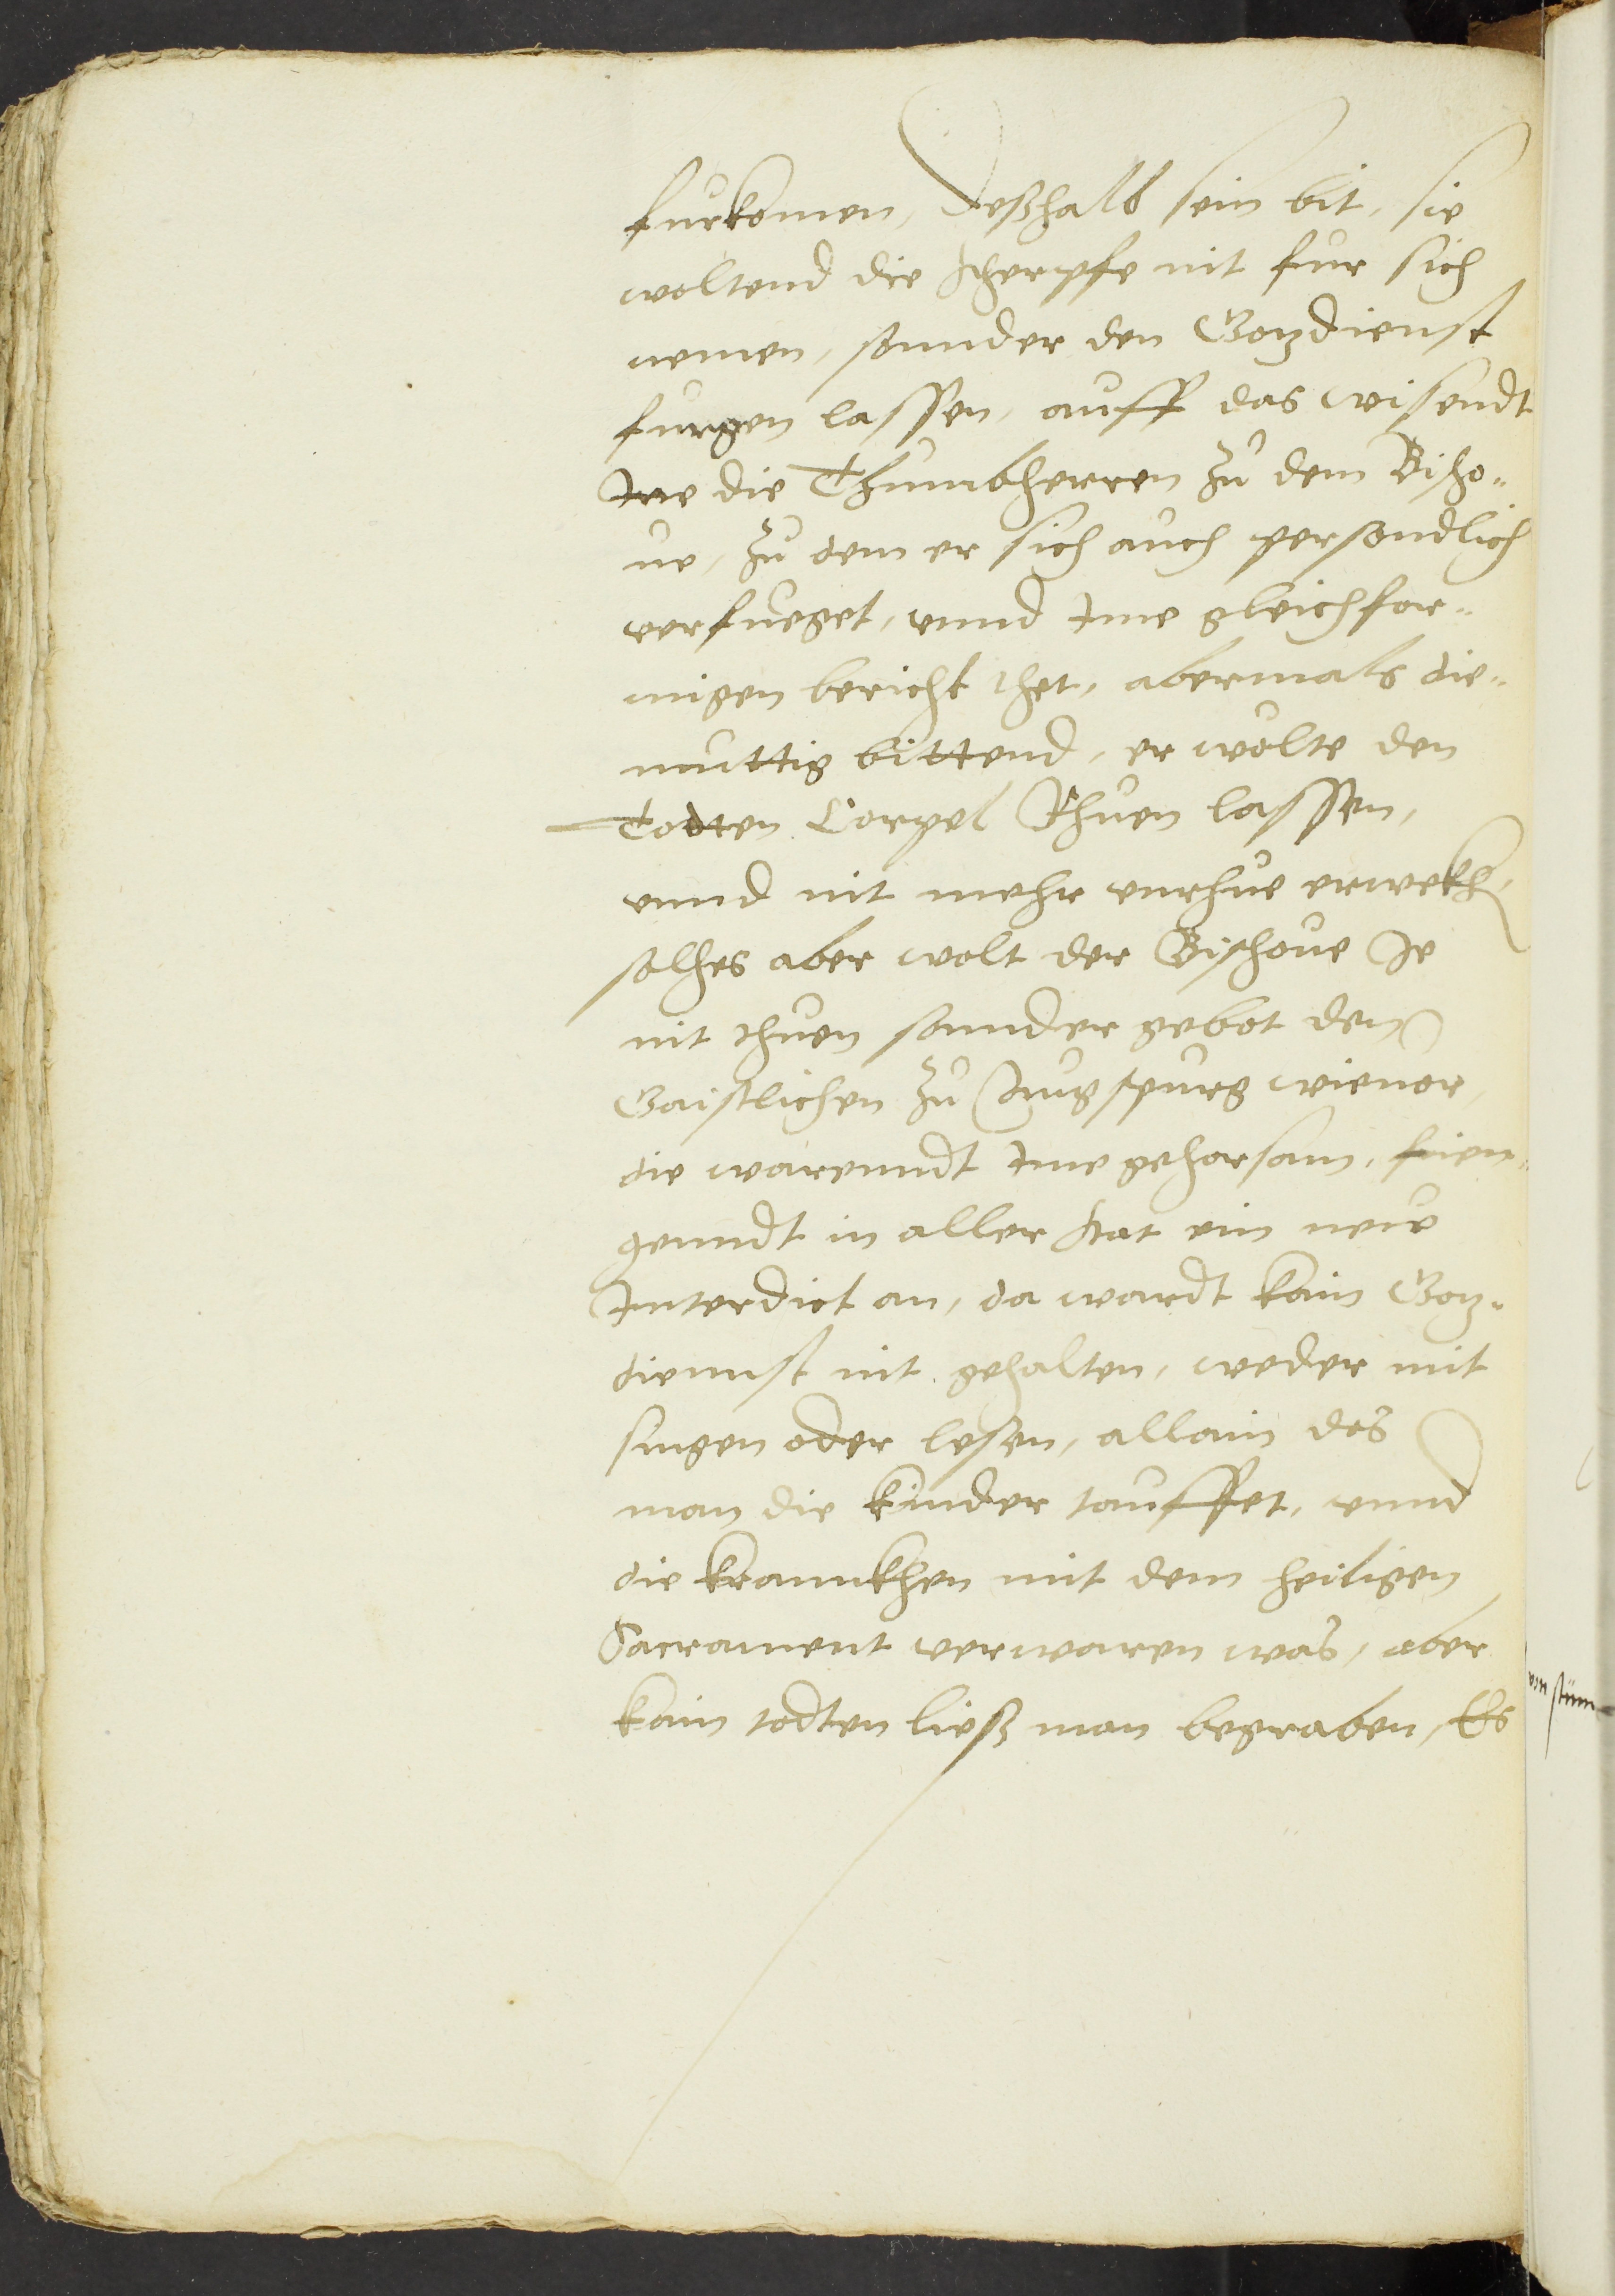 furkomen, Deßhalb sein bit, sie
woltend die scherpfe nit fur sich
nemen, sonnder den Gotzdienst
furgen lassen, auff das wisendt
Ine die Thumbherren zu dem Bischo-
ue, zu dem er sich auch persondlich
verfueget, vnnd Ime gleichfor-
migen bericht thet, abermals die-
muttig bittend, er wolte den
Todten Corpel Rhuen lassen,
vnnd nit mehr vnrhue erwekh,
solhes aber wolt der Bischoue Je
nit thuen sonnder gebot den
Gaistlichen zu Augspurg wieuor,
die warenndt Ime gehorsam, fien-
genndt in aller stat ein new
Interdict an, da wardt kain Gotz-
diennst nit gehalten, weder mit
singen oder lesen, allain das
man die kinder tauffet, vnnd
die krannkhen mit dem heiligen
Sacrament verwaren was, aber
kain todten ließ man begraben, Es